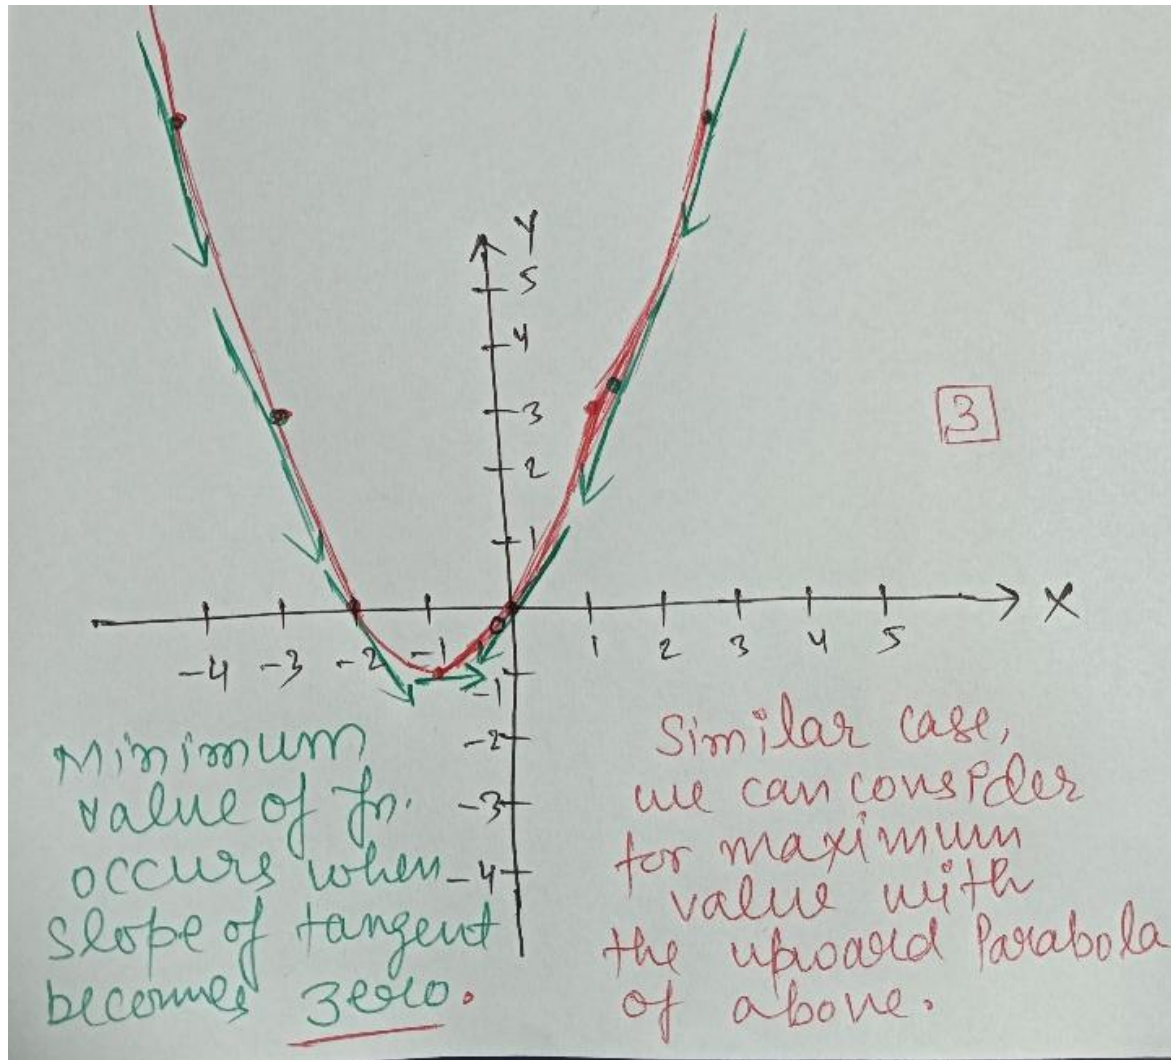 Y
5
4
3
2
1
3
X
-4 -3 -2 -1 1 2 3 4 5
-1
-2
-3
-4
Minimum
value of fn.
occurs when
slope of tangent
becomes zero.
Similar case,
we can consider
for maximum
value with
the upward Parabola
of above.